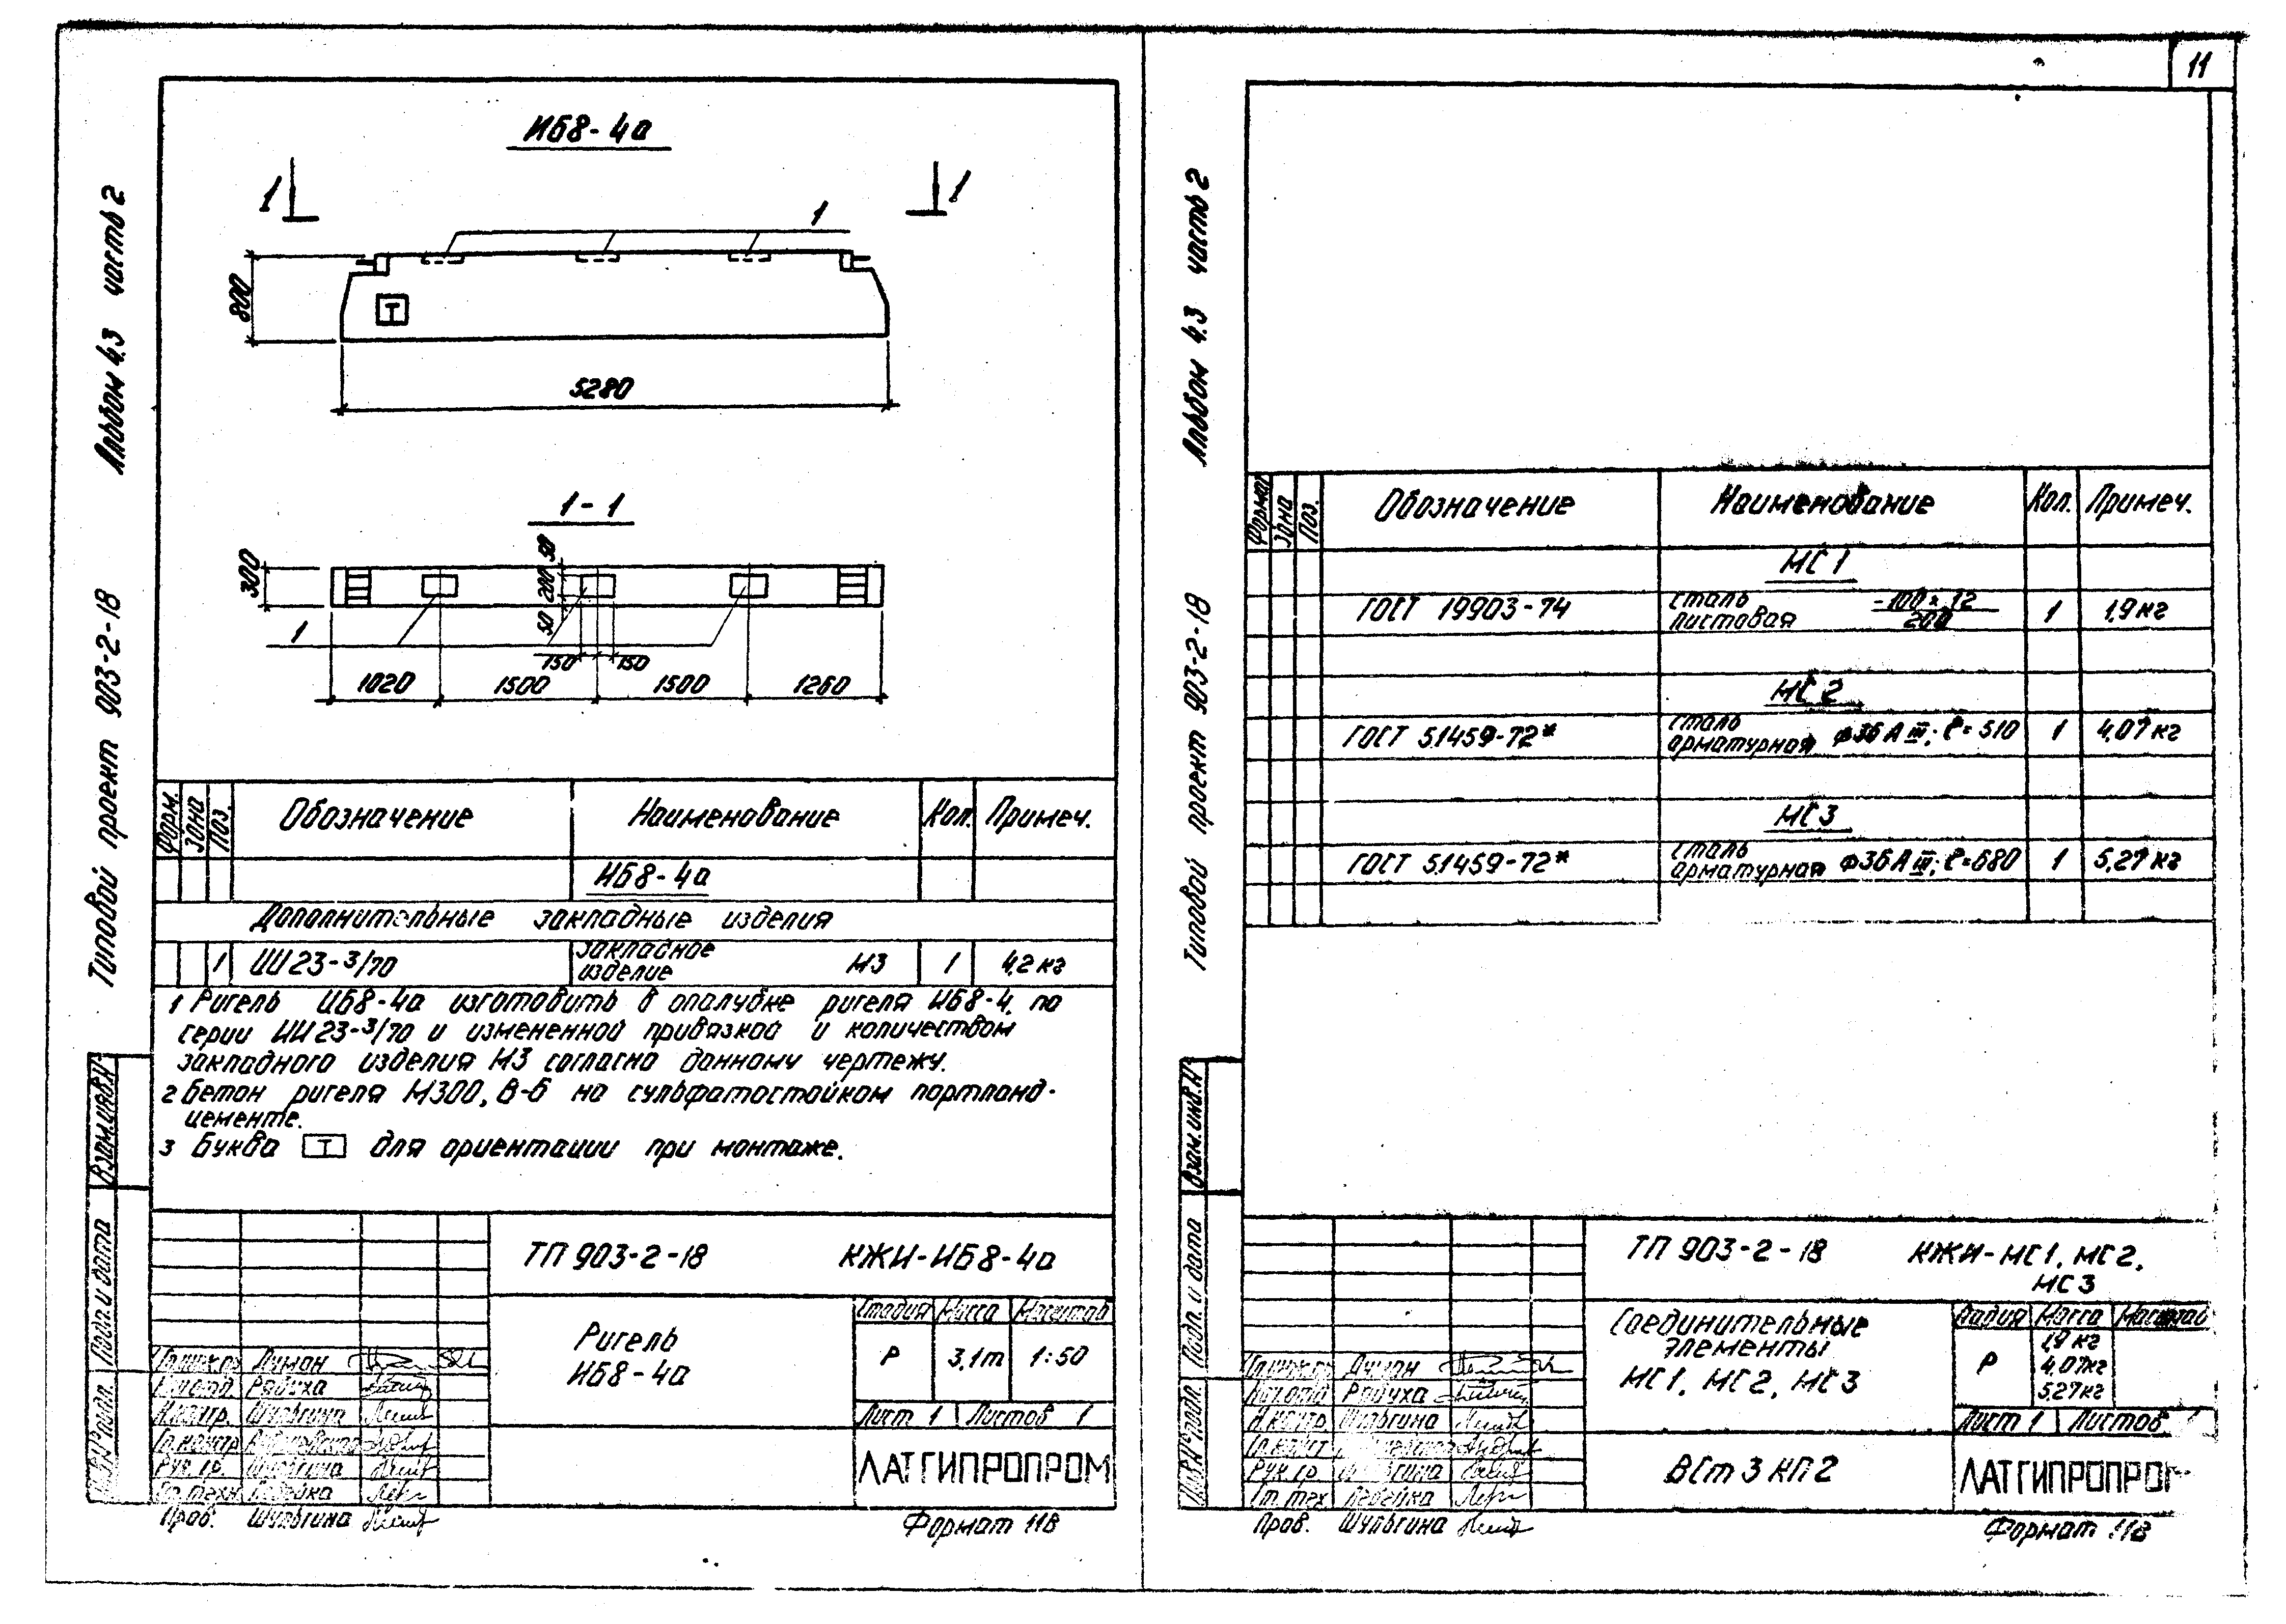 11
Типовой проект 903-2-18 Альбом 4.3 часть 2
ИБ8-4а
1 1
1
800
Т
5280
1-1
300
50
200
50
1
150 150
1020 1500 1500 1260
Форм. Зона Поз. Обозначение Наименование Кол. Примеч.
ИБ8-4а
Дополнительные закладные изделия
1 ИИ23-3/70 Закладное изделие М3 1 4,2 кг
1 Ригель ИБ8-4а изготовить в опалубке ригеля ИБ8-4, по
серии ИИ23-3/70 и измененной привязкой и количеством
закладного изделия М3 согласно данному чертежу.
2 Бетон ригеля М300, В-6 на сульфатостойком портланд-
цементе.
3 Буква Т для ориентации при монтаже.
Взам.инв.N
Подп. и дата
ТП 903-2-18 КЖИ-ИБ8-4а
Ригель
ИБ8-4а
Стадия Масса Масштаб
Р 3,1т 1:50
Лист 1 Листов 1
ЛАТГИПРОПРОМ
Думан
Рядуха
Шульгина
Рук. гр. Шульгина
Пров. Шульгина
Формат 11В
Типовой проект 903-2-18 Альбом 4.3 часть 2
Формат Зона Поз. Обозначение Наименование Кол. Примеч.
МС1
ГОСТ 19903-74 Сталь листовая -100×12/200 1 1,9 кг
МС2
ГОСТ 5.1459-72* Сталь арматурная ф36АIII; ℓ=510 1 4,07 кг
МС3
ГОСТ 5.1459-72* Сталь арматурная ф36АIII; ℓ=680 1 5,27 кг
Взам.инв.N
Подп. и дата
ТП 903-2-18 КЖИ-МС1, МС2,
МС3
Соединительные
элементы
МС1, МС2, МС3
Стадия Масса Масштаб
Р
1,9 кг
4,07кг
5,27кг
Лист 1 Листов 1
ВСт3кп2
ЛАТГИПРОПРО
Думан
Рядуха
Н.контр. Шульгина
Рук. гр. Шульгина
Пров. Шульгина
Формат 11В